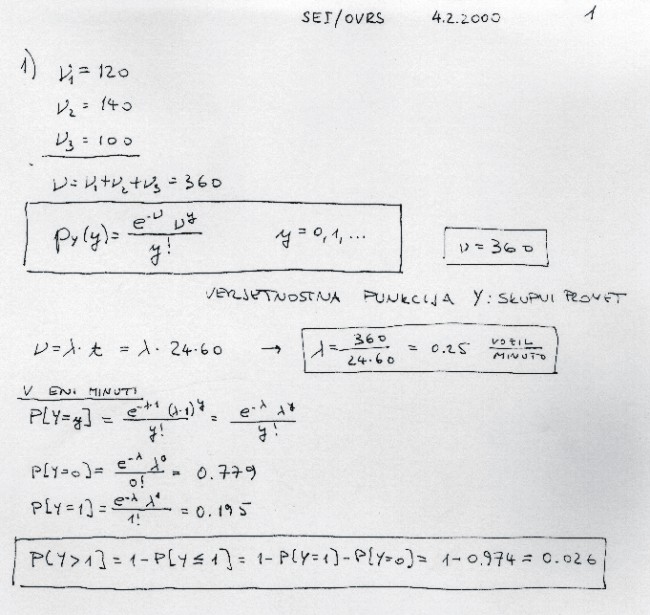 SEI/OVRS 4.2.2000 1
1) ν₁ = 120
ν₂ = 140
ν₃ = 100
ν = ν₁+ν₂+ν₃ = 360
p_Y(y) = e^{-ν} ν^y / y! y = 0, 1, ... ν = 360
VERJETNOSTNA FUNKCIJA Y: SKUPNI PROMET
ν = λ · t = λ · 24·60 → λ = 360 / 24·60 = 0.25 VOZIL / MINUTO
V ENI MINUTI
P[Y=y] = e^{-λ·1} (λ·1)^y / y! = e^{-λ} λ^y / y!
P[Y=0] = e^{-λ} λ^0 / 0! = 0.779
P[Y=1] = e^{-λ} λ^1 / 1! = 0.195
P(Y>1] = 1 - P[Y≤1] = 1 - P[Y=1] - P[Y=0] = 1 - 0.974 = 0.026